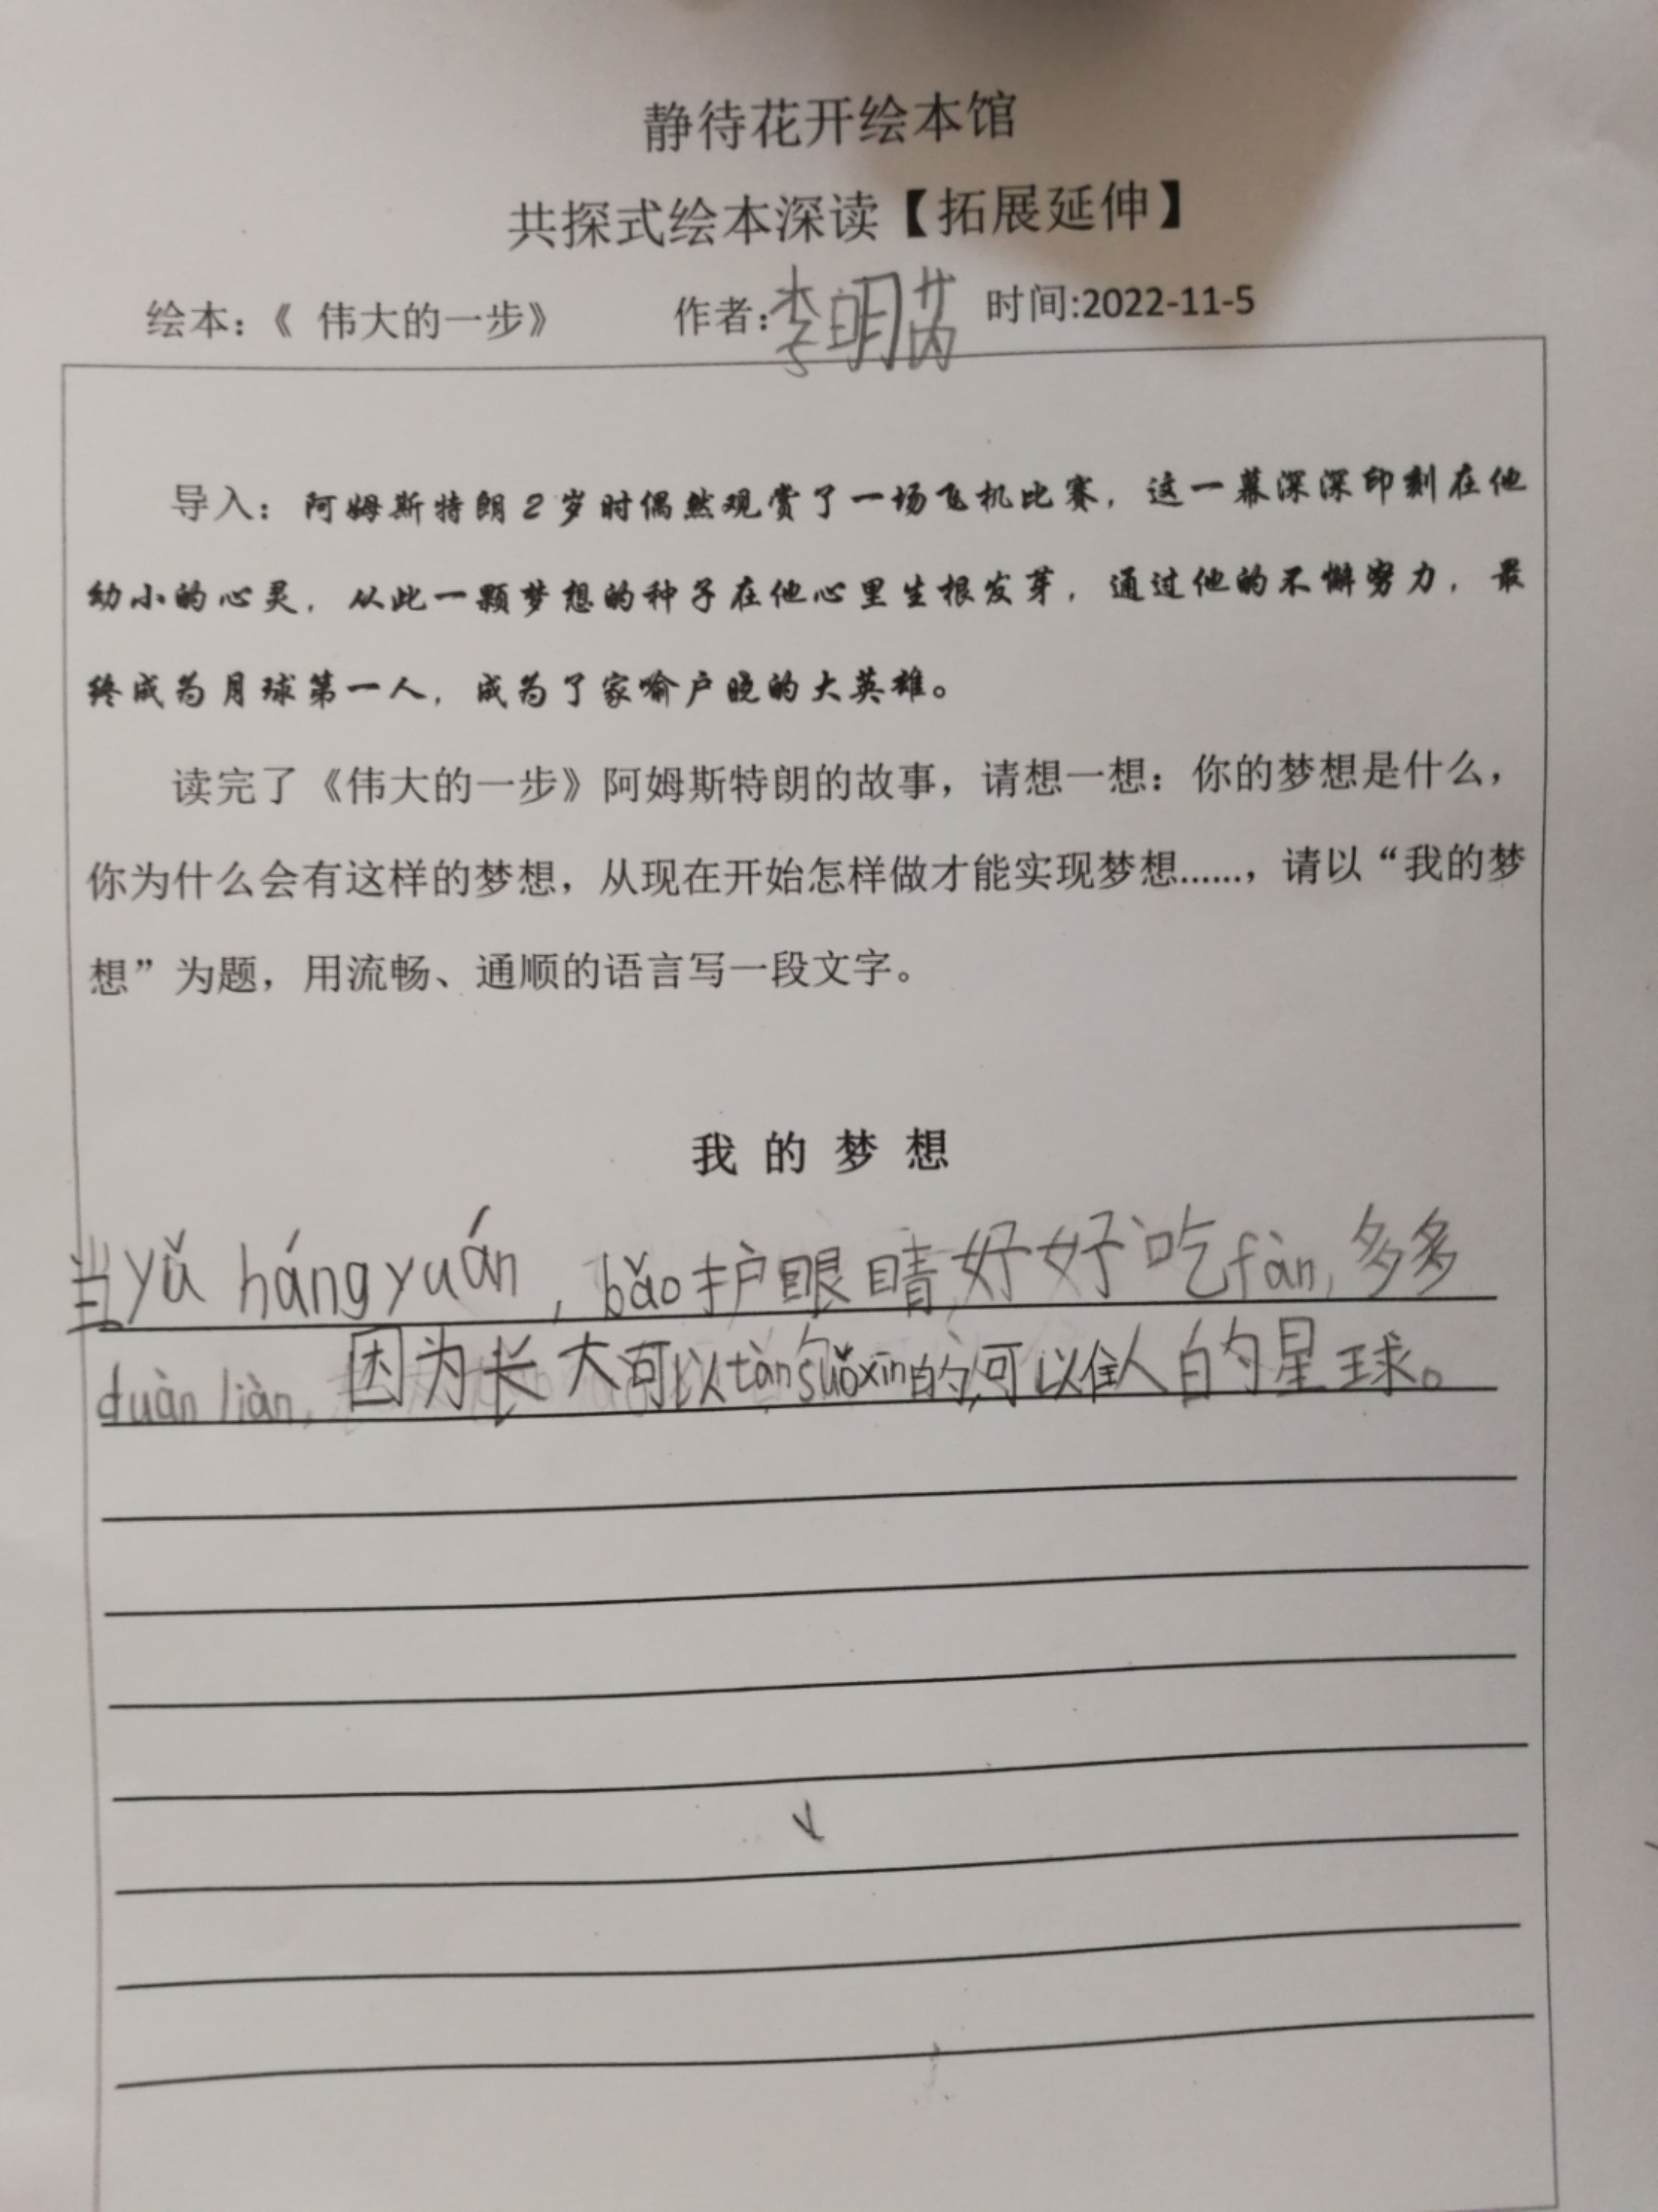 静待花开绘本馆
共探式绘本深读【拓展延伸】
绘本：《 伟大的一步》 作者：李明芮 时间:2022-11-5
导入：阿姆斯特朗2岁时偶然观赏了一场飞机比赛，这一幕深深印刻在他
幼小的心灵，从此一颗梦想的种子在他心里生根发芽，通过他的不懈努力，最
终成为月球第一人，成为了家喻户晓的大英雄。
读完了《伟大的一步》阿姆斯特朗的故事，请想一想：你的梦想是什么，
你为什么会有这样的梦想，从现在开始怎样做才能实现梦想……，请以“我的梦
想”为题，用流畅、通顺的语言写一段文字。
我 的 梦 想
当yǔ hángyuán，bǎo护眼睛,好好吃fàn,多多
duàn liàn,因为长大可以tànsuǒxīn的,可以住人的星球。